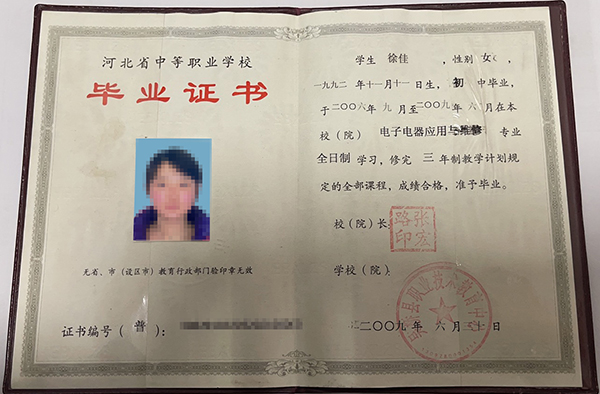 河北省中等职业学校
毕业证书
无省、市（设区市）教育行政部门验印章无效
证书编号（普）：
学生 徐佳 ，性别 女 ，
一九九二 年十一月十一日生， 初 中毕业，
于二〇〇六年 九 月至二〇〇九年 六 月在本
校（院） 电子电器应用与维修 专业
全日制 学习，修完 三 年制教学计划规
定的全部课程，成绩合格，准予毕业。
校（院）长
张宏路印
学校（院）
县职业技术教育中心
二〇〇九 年 六 月三十日